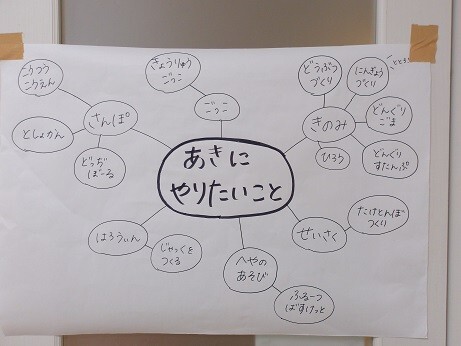 あきに
やりたいこと
さんぽ
こうつう
こうえん
としょかん
どっぢ
ぼーる
ごっこ
きょうりゅう
ごっこ
きのみ
どうぶつ
づくり
にんぎょう
づくり
どんぐり
ごま
どんぐり
すたんぷ
ひろう
せいさく
たけとんぼ
つくり
へやの
あそび
ふるーつ
ばすけっと
はろうぃん
じゃっくを
つくる